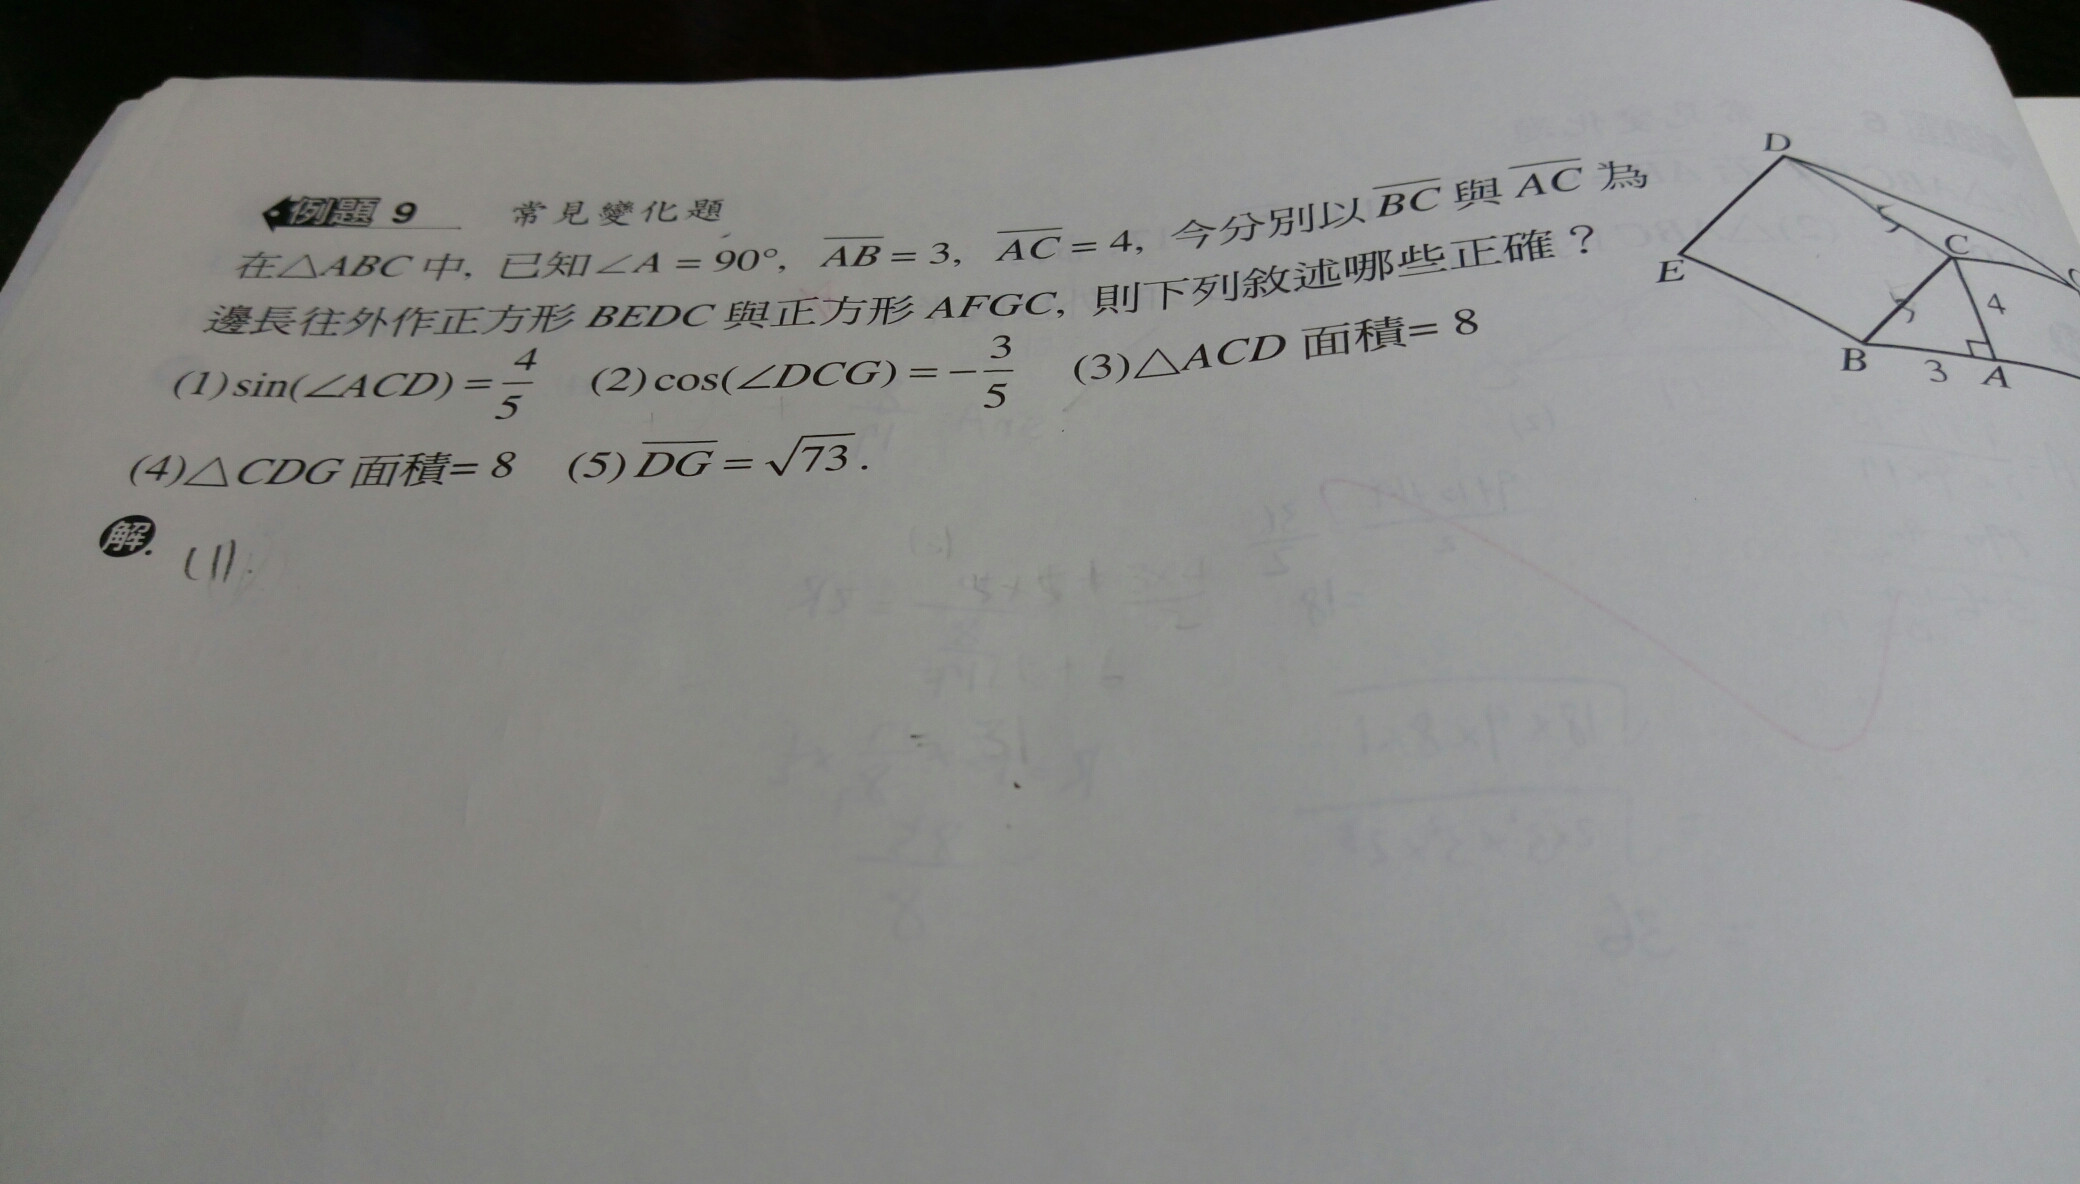 例題 9 常見變化題
在△ABC 中, 已知∠A = 90°, AB = 3, AC = 4, 今分別以 BC 與 AC 為
邊長往外作正方形 BEDC 與正方形 AFGC, 則下列敘述哪些正確？
(1) sin(∠ACD) = 4/5 (2) cos(∠DCG) = -3/5 (3)△ACD 面積= 8
(4)△CDG 面積= 8 (5) DG = √73.
解. (1).
D
5
C
E
5
4
B
3
A